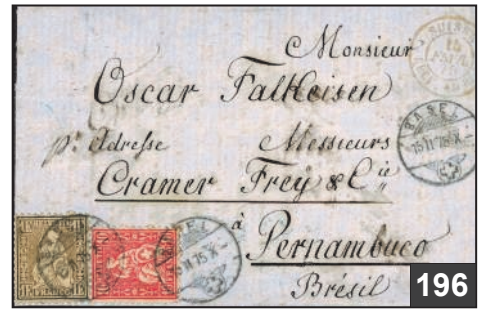 Monsieur
Oscar Falkeisen
pr. Adresse Messieurs
Cramer Frey & Cie
à
Pernambuco
Brésil
SUISSE
BASEL
BASEL
196